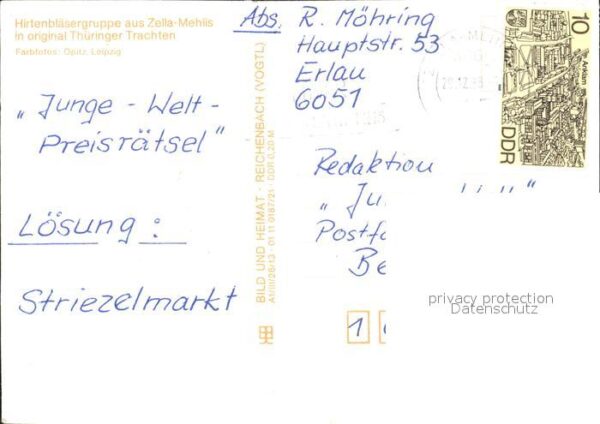 Hirtenbläsergruppe aus Zella-Mehlis
in original Thüringer Trachten
Farbfotos: Opitz, Leipzig
„Junge - Welt -
Preisrätsel"
Lösung :
Striezelmarkt
BILD UND HEIMAT · REICHENBACH (VOGTL)
A1/III/26/13 01 11 0187/21 · DDR 0,20 M
Abs. R. Möhring
Hauptstr. 53
Erlau
6051
10
Anklam
DDR
Redaktion
„Ju
Postfa
Be
1
privacy protection
Datenschutz